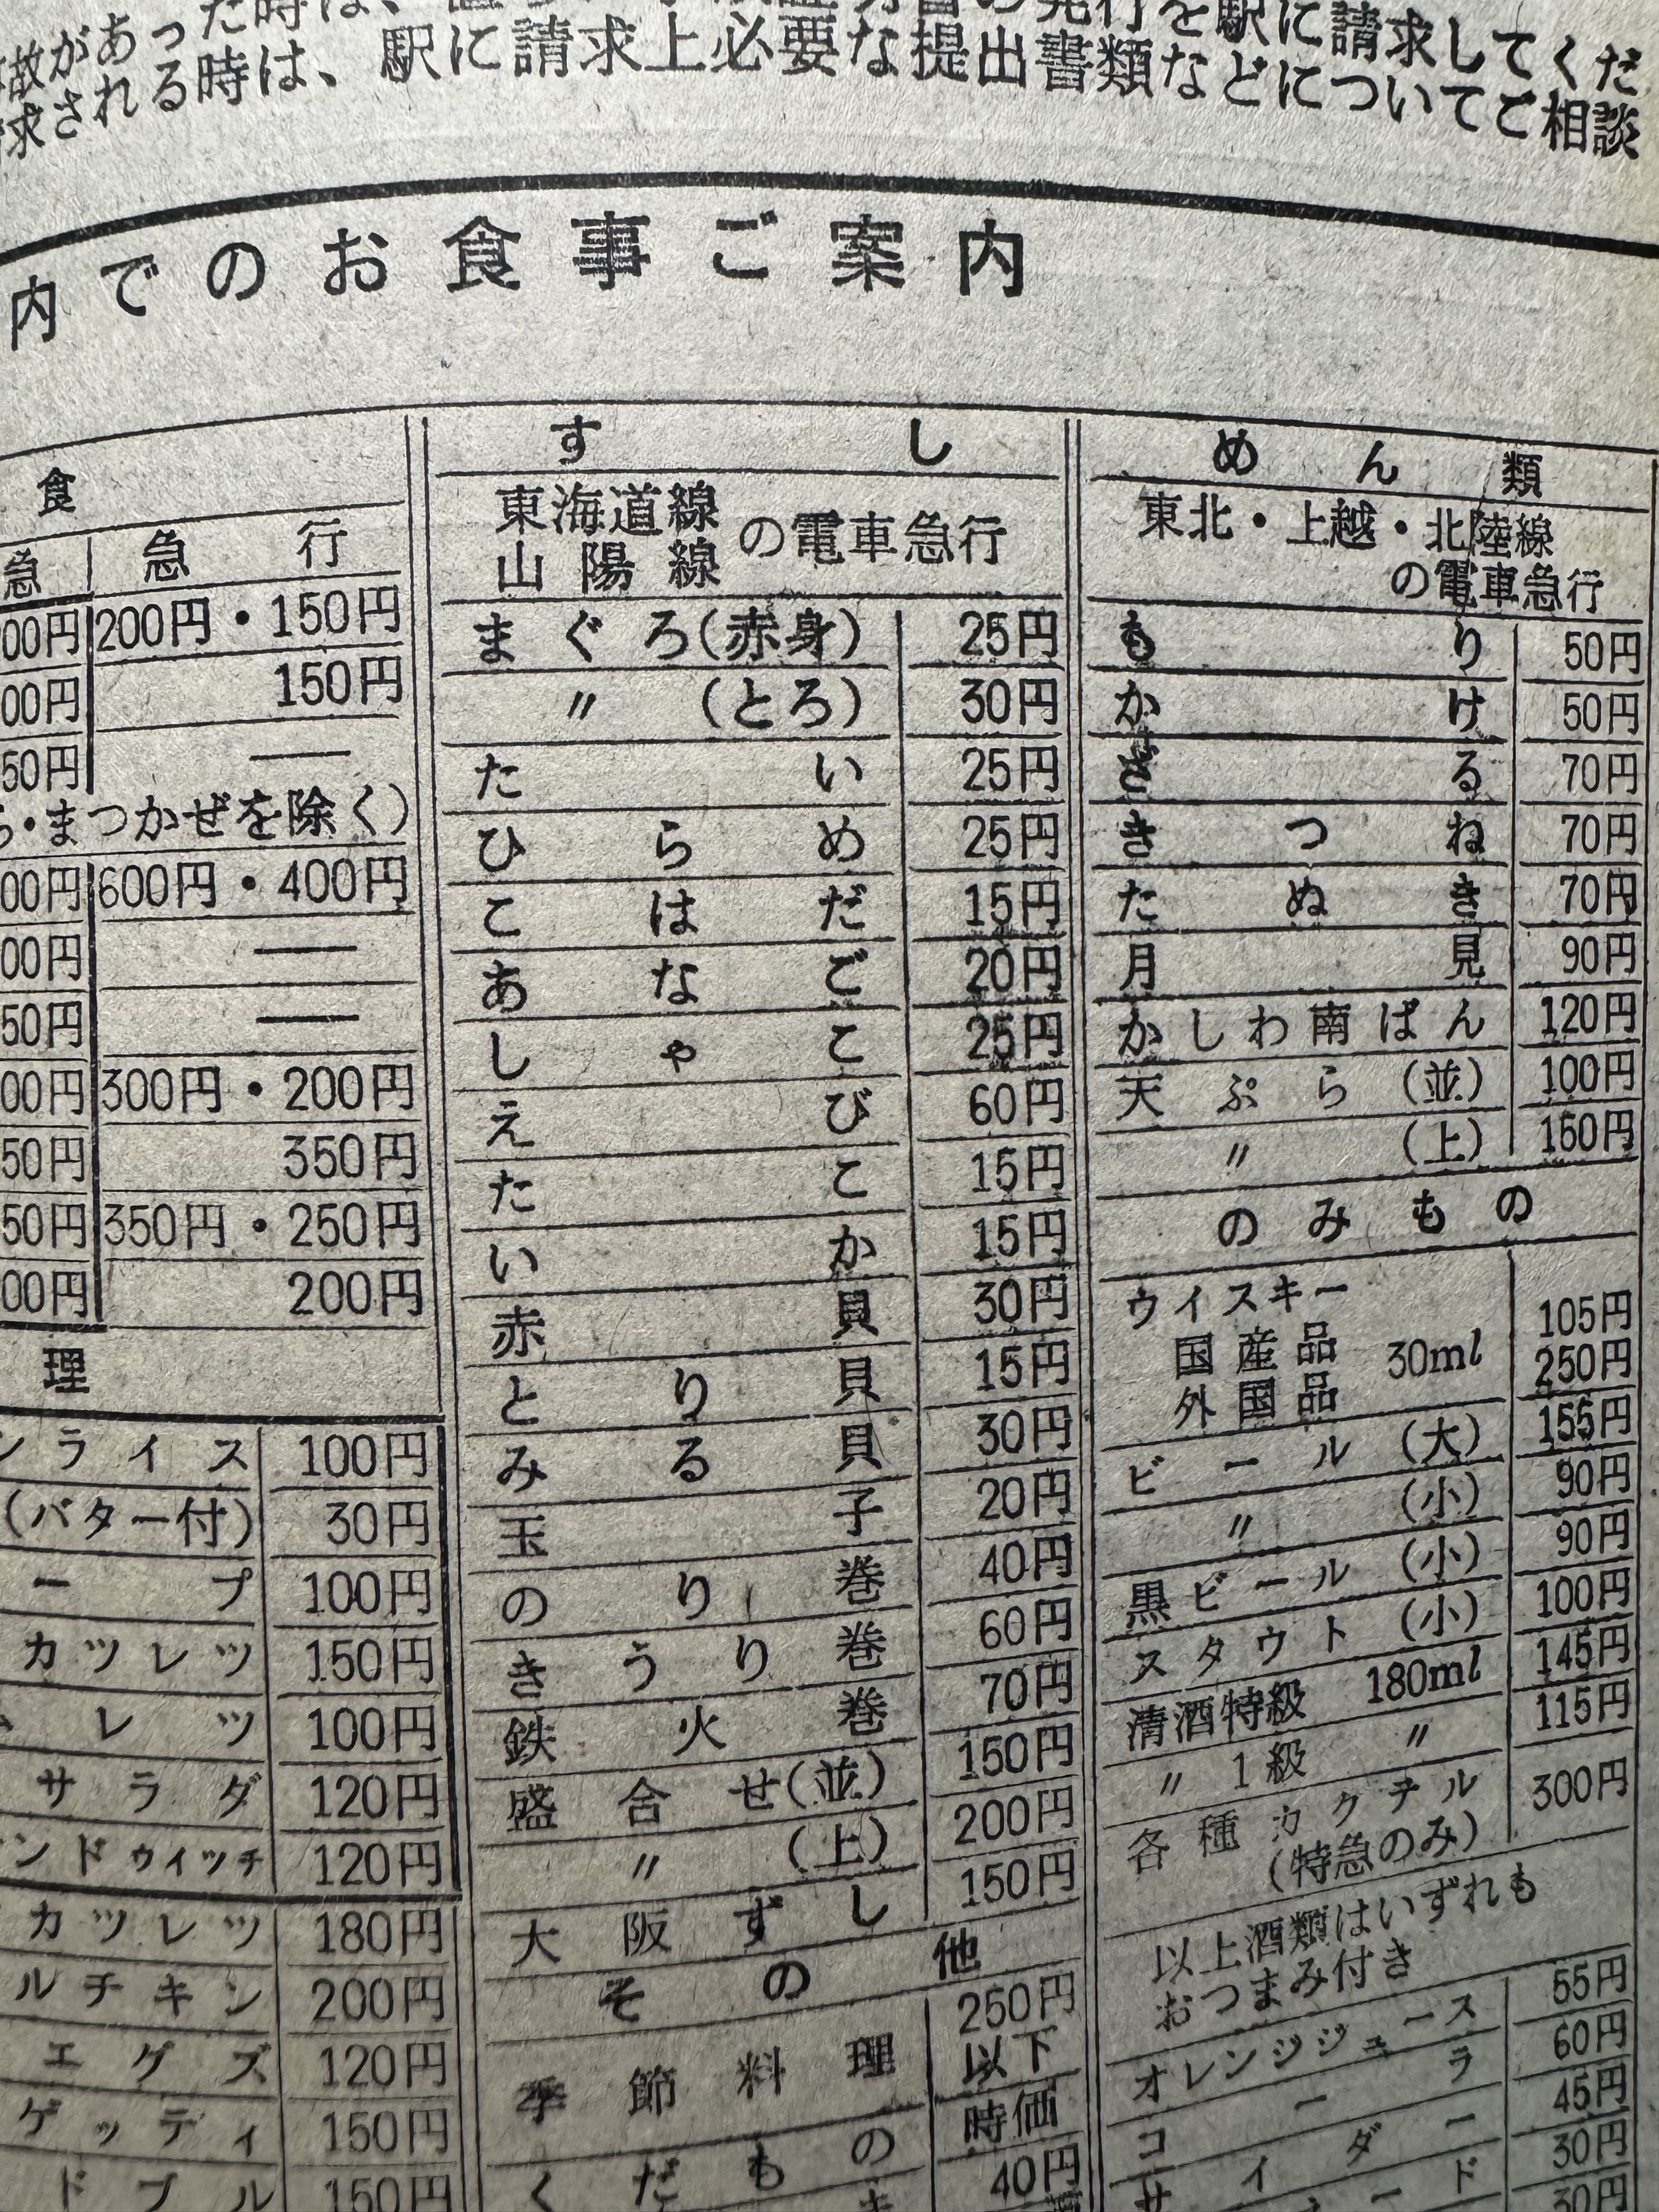 故があった時は、
求される時は、駅に請求上必要な提出書類などについてご相談
の発行を駅に請求してくだ
内でのお食事ご案内
食
急 急行
00円 200円・150円
00円 150円
50円 ―
・まつかぜを除く)
00円 600円・400円
00円 ―
50円 ―
00円 300円・200円
50円 350円
50円 350円・250円
00円 200円
理
ンライス 100円
(バター付) 30円
ープ 100円
カツレツ 150円
レツ 100円
サラダ 120円
ンドウイッチ 120円
カツレツ 180円
ルチキン 200円
エグズ 120円
ゲッティ 150円
ドブル 150円
すし
東海道線
山陽線 の電車急行
まぐろ(赤身) 25円
〃 (とろ) 30円
たい 25円
ひらめ 25円
こはだ 15円
あなご 20円
しゃこ 25円
えび 60円
たこ 15円
いか 15円
赤貝 30円
とり貝 15円
みる貝 30円
玉子 20円
のり巻 40円
きうり巻 60円
鉄火巻 70円
盛合せ(並) 150円
〃 (上) 200円
大阪ずし 150円
その他
季節料理 250円以下時価
くだもの 40円
めん類
東北・上越・北陸線
の電車急行
もり 50円
かけ 50円
ざる 70円
きつね 70円
たぬき 70円
月見 90円
かしわ南ばん 120円
天ぷら(並) 100円
〃 (上) 150円
のみもの
ウイスキー
国産品 30ml 105円
外国品 250円
ビール(大) 155円
〃 (小) 90円
黒ビール(小) 90円
スタウト(小) 100円
清酒特級 180ml 145円
〃 1級 〃 115円
各種カクテル 300円
(特急のみ)
以上酒類はいずれも
おつまみ付き
オレンジジュース 55円
コーラ 60円
サイダー 45円
ード 30円
30円